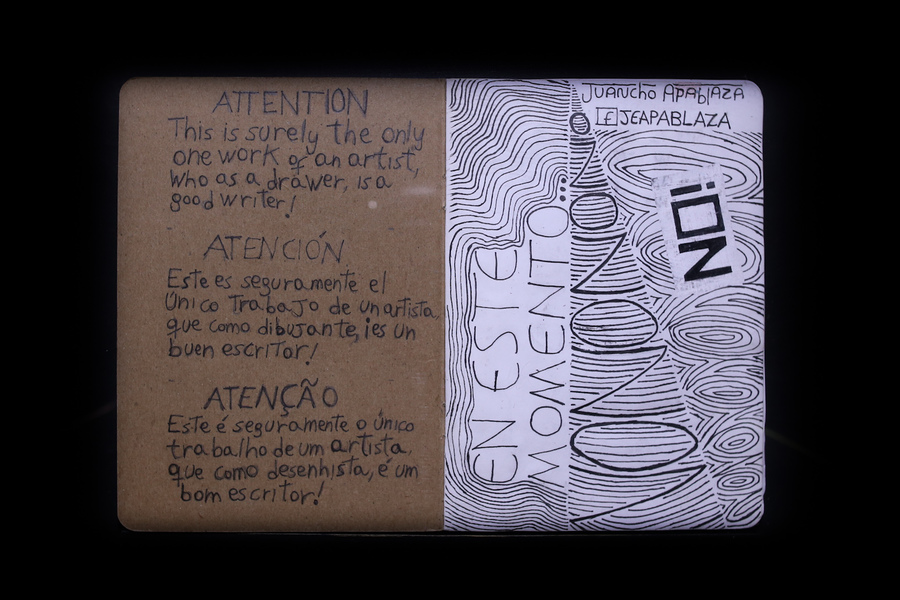 ATTENTION
This is surely the only
one work of an artist,
Who as a drawer, is a
good writer!
ATENCIÓN
Este es seguramente el
Único Trabajo de un artista,
que como dibujante, ¡es un
buen escritor!
ATENÇÃO
Este é seguramente o único
trabalho de um artista,
que como desenhista, é um
bom escritor!
JUANCHO APAblAZA
f JEAPABLAZA
EN ESTE
MOMENTO...
¡ON